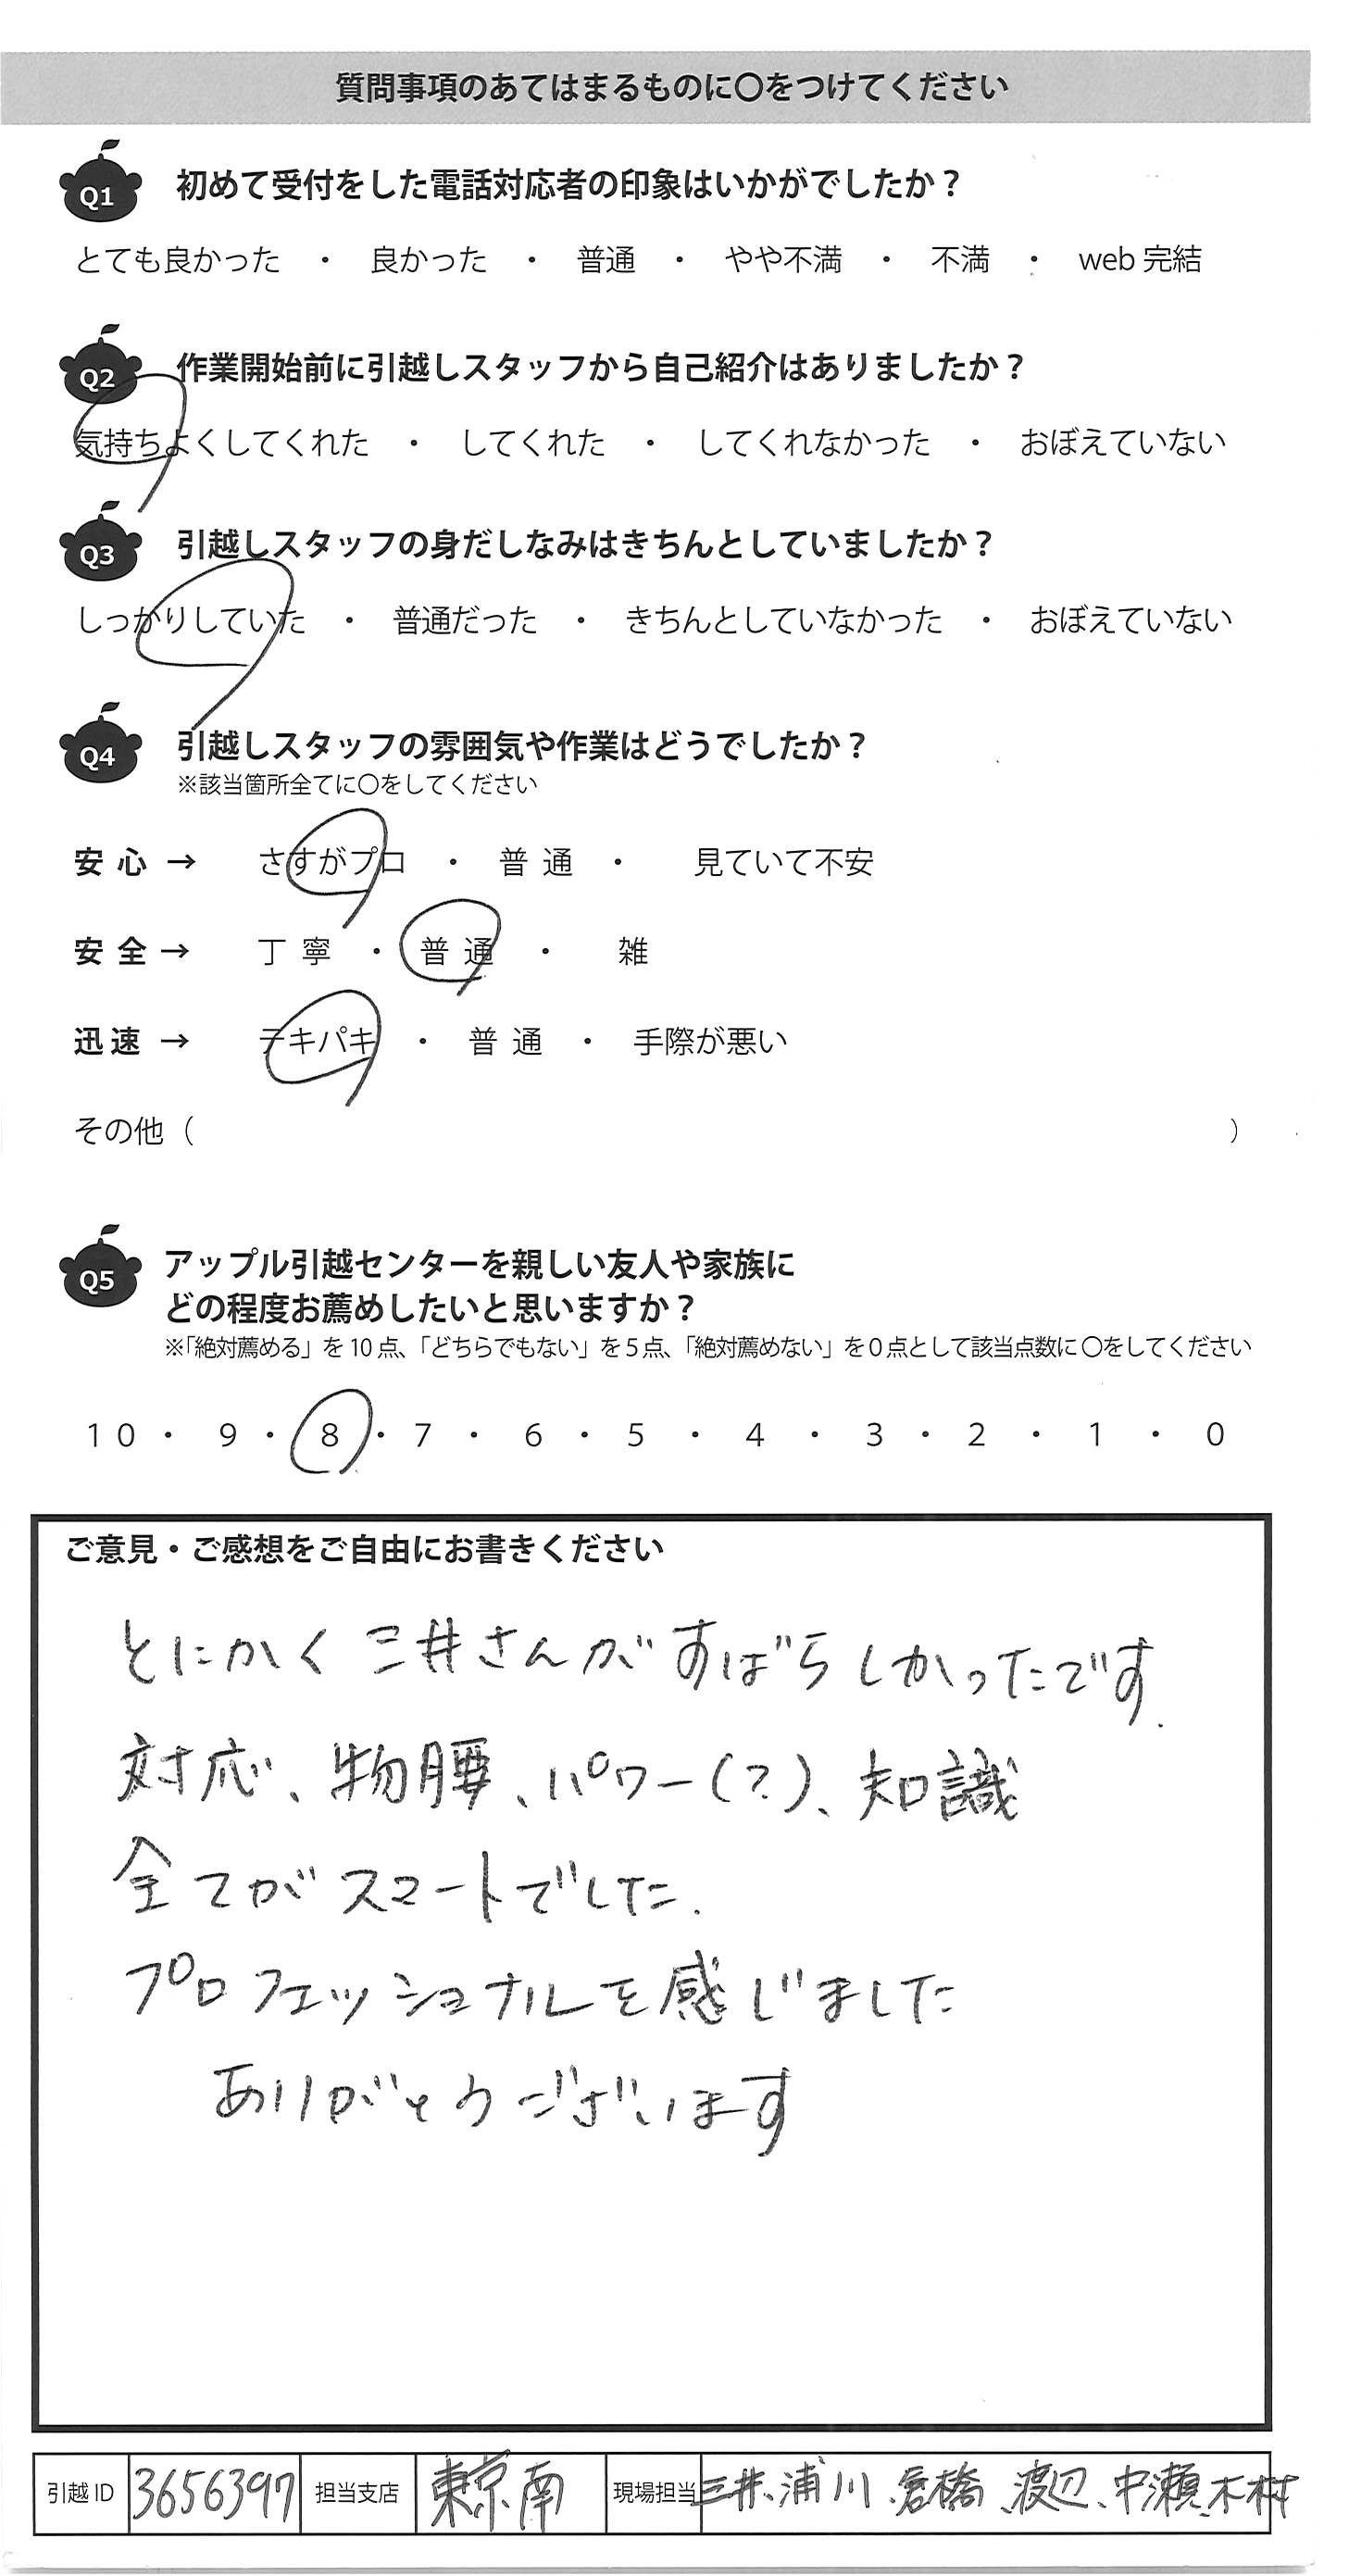 質問事項のあてはまるものに〇をつけてください
Q1 初めて受付をした電話対応者の印象はいかがでしたか？
とても良かった ・ 良かった ・ 普通 ・ やや不満 ・ 不満 ・ web 完結
Q2 作業開始前に引越しスタッフから自己紹介はありましたか？
気持ちよくしてくれた ・ してくれた ・ してくれなかった ・ おぼえていない
Q3 引越しスタッフの身だしなみはきちんとしていましたか？
しっかりしていた ・ 普通だった ・ きちんとしていなかった ・ おぼえていない
Q4 引越しスタッフの雰囲気や作業はどうでしたか？
※該当箇所全てに〇をしてください
安心 → さすがプロ ・ 普通 ・ 見ていて不安
安全 → 丁寧 ・ 普通 ・ 雑
迅速 → テキパキ ・ 普通 ・ 手際が悪い
その他（ ）
Q5 アップル引越センターを親しい友人や家族に
どの程度お薦めしたいと思いますか？
※「絶対薦める」を10点、「どちらでもない」を5点、「絶対薦めない」を0点として該当点数に〇をしてください
10 ・ 9 ・ 8 ・ 7 ・ 6 ・ 5 ・ 4 ・ 3 ・ 2 ・ 1 ・ 0
ご意見・ご感想をご自由にお書きください
とにかく三井さんがすばらしかったです.
対応、物腰、パワー(?)、知識
全てがスマートでした.
プロフェッショナルを感じました
ありがとうございます
引越ID 3656397 担当支店 東京南 現場担当 三井、浦川、倉橋、渡辺、中瀬、木村